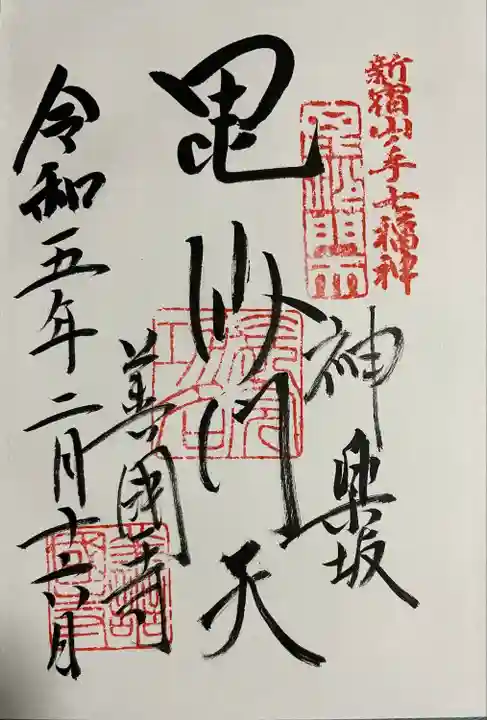 新宿山ノ手七福神
神楽坂
毘沙門天
善國寺
令和五年二月十六日